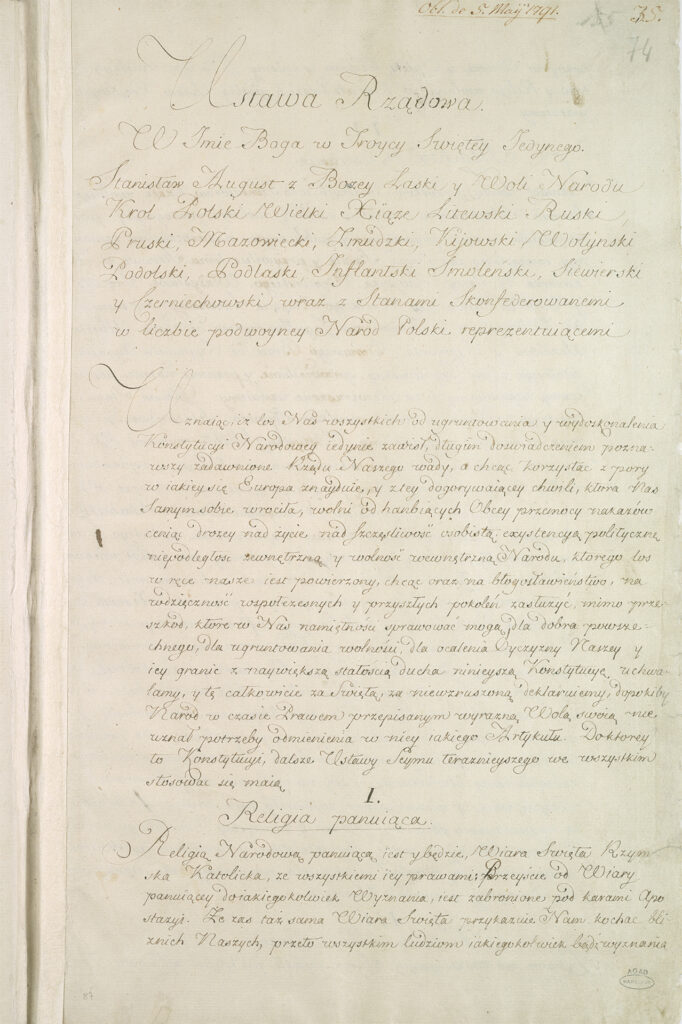 Obl. de 5. Maij 1791.
155
35.
74
Ustawa Rządowa.
W Jmie Boga w Troycy Swiętey Jedynego.
Stanisław August z Bożey Łaski y Woli Narodu
Krol Polski Wielki Xiąże Litewski Ruski
Pruski, Mazowiecki, Zmudzki, Kijowski, Wołyński
Podolski, Podlaski, Jnflantski Smoleński, Siewierski
y Czerniechowski wraz z Stanami Skonfederowanemi
w liczbie podwoyney Narod Polski reprezentuiącemi
Uznaiąc, iż los Nas wszystkich od ugruntowania y wydoskonalenia
Konstytucyi Narodowey iedynie zawisł, długim doświadczeniem pozna-
wszy zadawnione Rządu Naszego wady, a chcąc korzystać z pory
w iakiey się Europa znayduie, y z tey dogorywaiącey chwili, ktora Nas
Samym sobie wrociła, wolni od hanbiących Obcey przemocy nakazow
ceniąc drożey nad życie, nad Szczęsliwość osobistą exystencyą polityczną
niepodległosc zewnętrzną y wolność wewnętrzną Narodu, ktorego los
w ręce nasze iest powierzony, chcąc oraz na błogosławieństwo, na
wdzięczność wspołczesnych y przyszłych pokoleń zasłużyć, mimo prze-
szkod, ktore w Nas namiętności sprawować mogą, dla dobra powsze-
chnego, dla ugruntowania wolności, dla ocalenia Oyczyzny Naszey y
iey granic z naywiększą stałoscią ducha ninieyszą Konstytucyę uchwa-
lamy, y tę całkowicie za Swiętą, za niewzruszoną deklaruiemy, dopokiby
Narod w czasie Prawem przepisanym wyrazną Wolą swoią nie
uznał potrzeby odmienienia w niey iakiego Artykułu. Do ktorey
to Konstytucyi, dalsze Ustawy Seymu teraznieyszego we wszystkim
stosować się maią
I.
Religia panuiąca.
Religią Narodową panuiącą iest y będzie, Wiara Swięta Rzym-
ska Katolicka, ze wszystkiemi iey prawami; Przeyście od Wiary
panuiącey do iakiegokolwiek Wyznania, iest zabronione pod karami Apo
stazyi. Ze zas taż sama Wiara Swięta przykazuie Nam kochać bli
znich Naszych, przeto wszystkim ludziom iakiegokolwiek bądź wyznania
AGAD
87